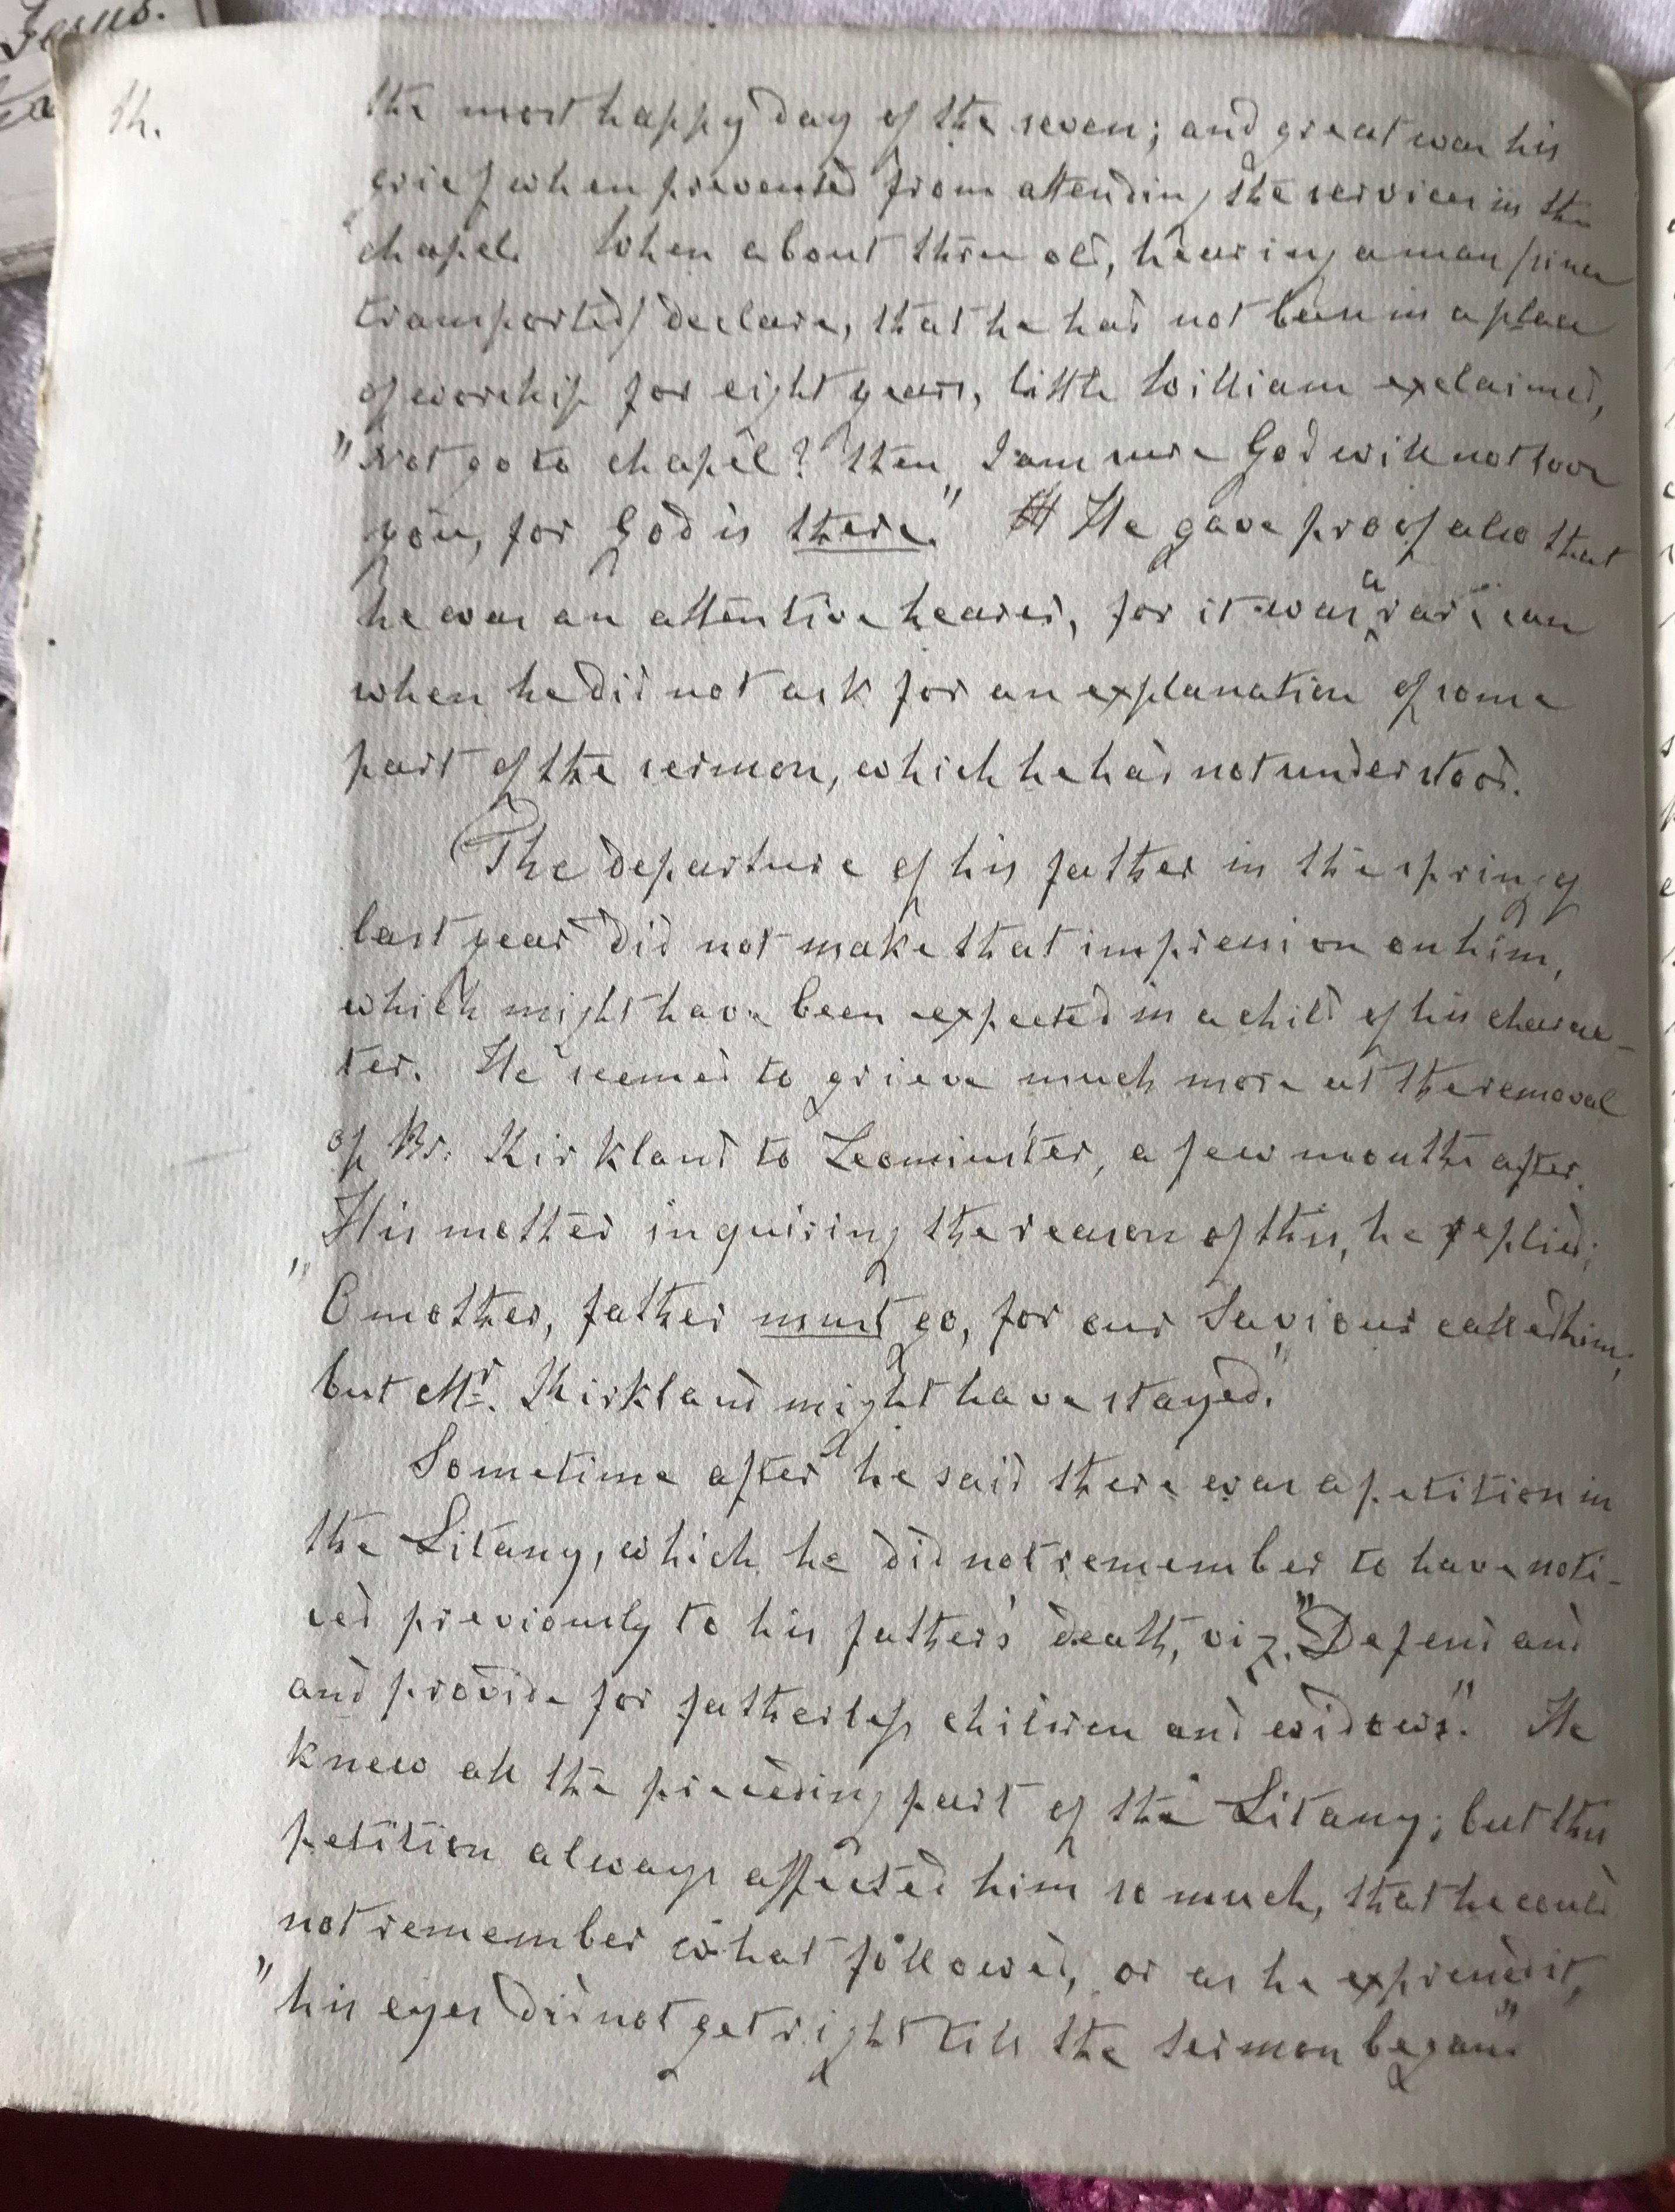 Jesus.
14.
the most happy day of the seven; and great was his
grief when prevented from attending the services in the
chapel. When about three old, hearing a man /since
transported/ declare, that he had not been in a place
of worship for eight years, little William exclaimed,
"Not go to chapel? then I am sure God will not love
you, for God is there." He gave proof also that
he was an attentive hearer, for it was a rare case
when he did not ask for an explanation of some
part of the sermon, which he had not understood.
The departure of his father in the spring of
last year did not make that impression on him,
which might have been expected in a child of his charac-
ter. He seemed to grieve much more at the removal
of Br. Kirkland to Leominster, a few months after.
His mother inquiring the reason of this, he replied;
"O mother, father must go, for our Saviour called him,
but Mr. Kirkland might have stayed."
Sometime after he said there was a petition in
the Litany, which he did not remember to have noti-
ced previously to his father's death, viz. "Defend and
and provide for fatherless children and widows." He
knew all the preceding part of the Litany; but this
petition always affected him so much, that he could
not remember what followed, or as he expressed it,
"his eyes did not get right till the sermon began."